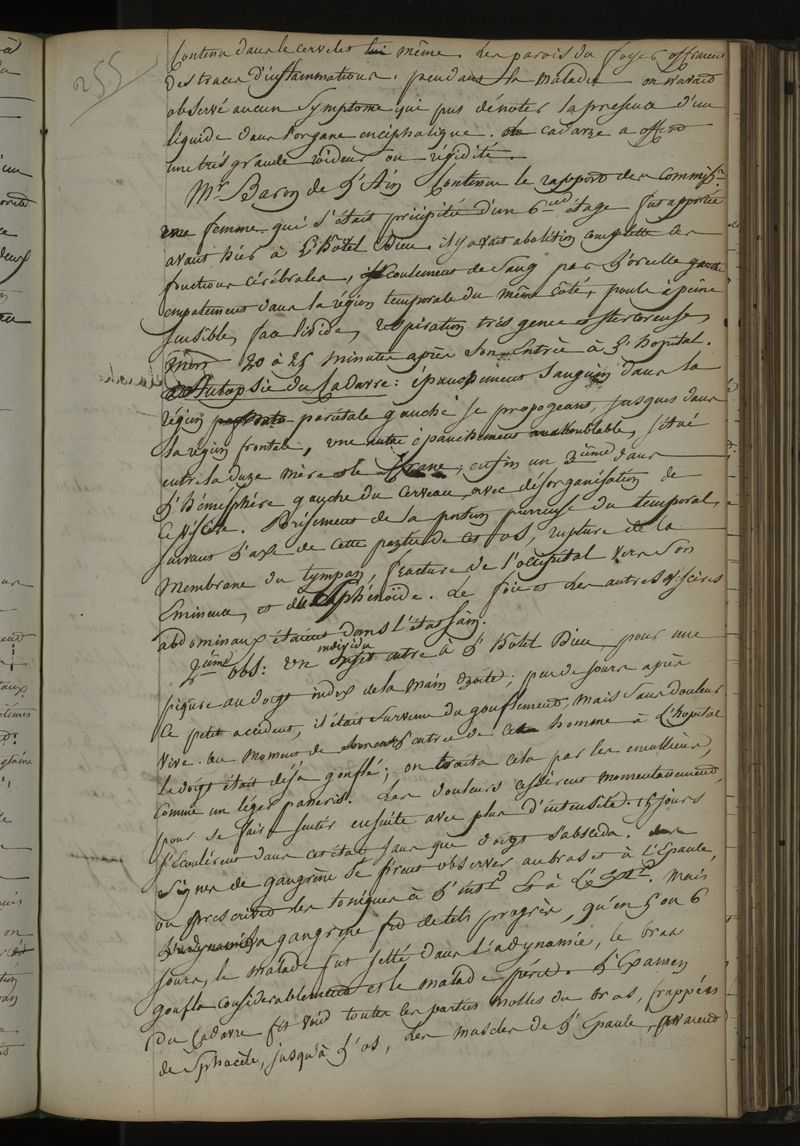 255
Contenu dans le cervelet lui même. Les parois du foyer offraient
des traces d'inflammation. pendant la maladie on n'avait
observé aucun symptome qui pus dénoter la présence d'un
liquide dans l'organe encéphalique. Le cadavre a offert
une très grande roideur ou rigidité.
Mr Baron de L'Ain Continue le rapport des Commiss.
une femme qui s'était précipitée d'un 6me étage fut apportée
avant hier à L'hôtel Dieu. il y avait abolition complette des
fonctions cérébrales, écoulement de Sang par L'oreille gauche
empatement dans la région temporale du même côté, pouls à peine
sensible, face livide, respiration très génée et stertoreuse,
mort 20 à 25 minutes après Son Entrée à L'hopital.
Autopsie du Cadavre : épanchement Sanguin dans la
région pariétale gauche se propogeant, jusques dans
la région frontale, une autre épanchement, situé
entre la dure mère et le crane, enfin un 3ième dans
L'hémisphère gauche du Cerveau, avec désorganisation de
ce viscère. Brisement de la portion pierreuse du temporal,
suivant L'axe de cette partie de cet os, rupture de la
membrane du tympan, fracture de l'occipital vers Son
Eminence, et du Sphénoïde. Le foie et les autres viscères
abdominaux étaient dans L'état Sain.
2ième Obs: Un individu entre à L'hôtel Dieu pour une
piqure au doigt index de la main droite ; peu de jours après
ce petit accident, il était survenu du gonflement, mais Sans douleur
vive. au moment de L'entrée de cet homme à L'hopital
le doigt était déjà gonflé ; on traita cela par les emolliens,
comme un léger panaris. Les douleurs cessèrent momentanement,
pour se faire sentir ensuite avec plus d'intensité. 15 jours
s'écoulèrent dans cet état sans que doigt s'abscéda. des
Signes de gangrène se firent observer au bras et à L'Epaule,
on prescrivit les toniques à L'int. & à L'ext. Mais
la gangrène fit de tels progrès, qu'en 5 ou 6
jours, le malade fut jetté dans L'adynamie, le bras
gonfla considerablement et le malade périt. L'Examen
du Cadavre fit voir toutes les parties molles du bras, frappées
de Sphacèle, jusqu'à L'os, Les muscles de L'Epaule, avaient